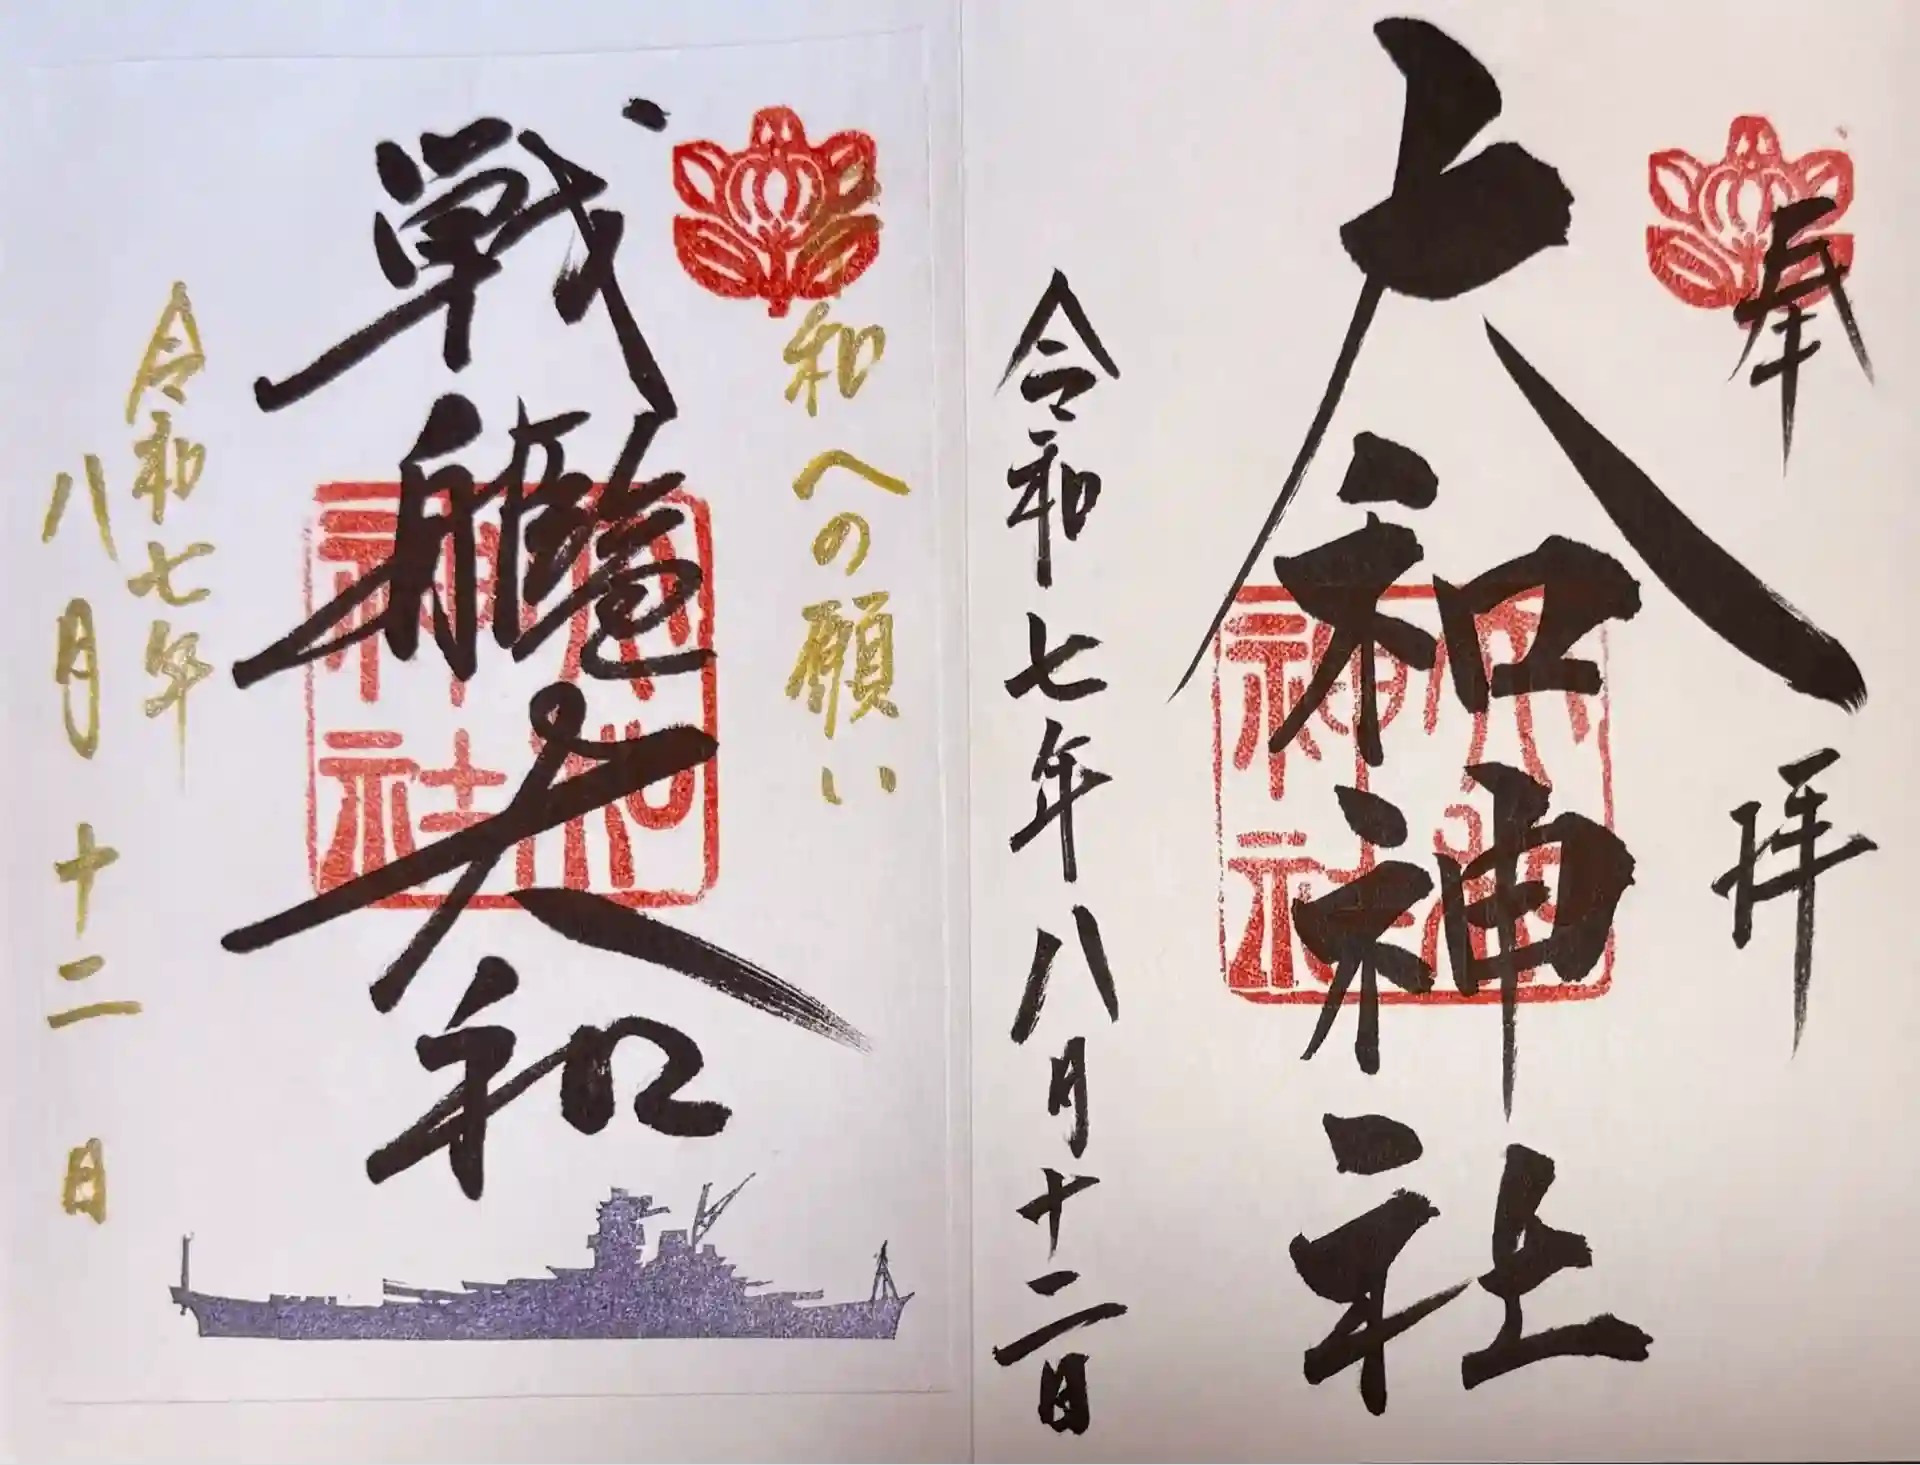 奉拝
大和神社
大和神社
令和七年八月十二日
和への願い
戦艦大和
大和神社
令和七年
八月十二日